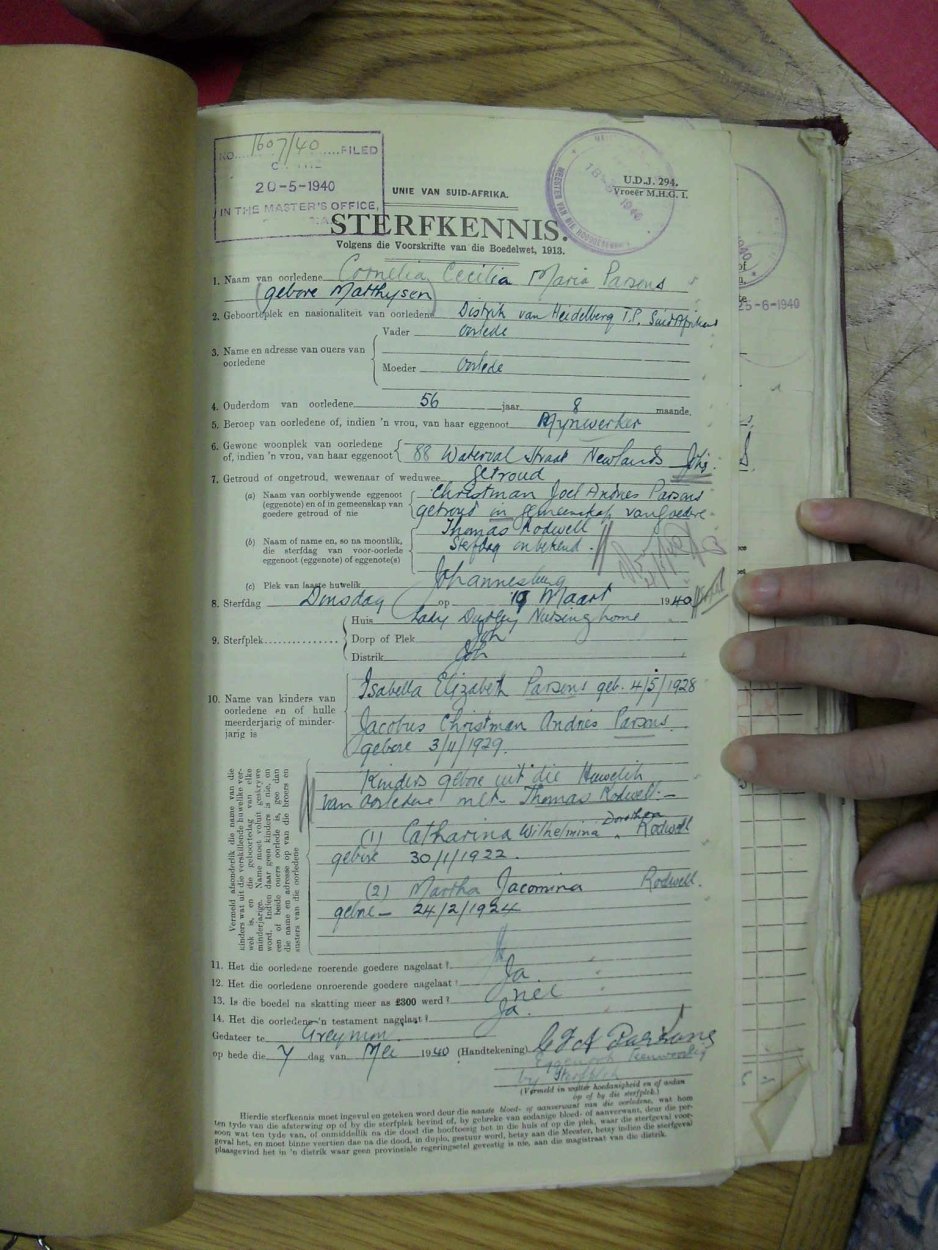 NO. 1607/40 FILED
20-5-1940
IN THE MASTER'S OFFICE,
UNIE VAN SUID-AFRIKA.
U.D.J. 294.
Vroeër M.H.G. 1.
STERFKENNIS.
Volgens die Voorskrifte van die Boedelwet, 1913.
1. Naam van oorledene Cornelia Cecilia Maria Parsons
(gebore Matthysen)
2. Geboorteplek en nasionaliteit van oorledene Distrik van Heidelberg T.P. Suid Afrikaans
3. Name en adresse van ouers van oorledene
Vader oorlede
Moeder oorlede
4. Ouderdom van oorledene 56 jaar 8 maande.
5. Beroep van oorledene of, indien 'n vrou, van haar eggenoot Mynwerker
6. Gewone woonplek van oorledene of, indien 'n vrou, van haar eggenoot 88 Waterval Straat Newlands Jhb.
7. Getroud of ongetroud, wewenaar of weduwee getroud
(a) Naam van oorblywende eggenoot (eggenote) en of in gemeenskap van goedere getroud of nie
Christman Joel Andries Parsons
getroud in gemeenskap van goedre
(b) Naam of name en, so na moontlik, die sterfdag van voor-oorlede eggenoot (eggenote) of eggenote(s)
Thomas Rodwell
Sterfdag onbekend.
(c) Plek van laaste huwelik Johannesburg
8. Sterfdag Dinsdag op 19 Maart 1940
9. Sterfplek
Huis Lady Dudley Nursing home
Dorp of Plek Jhb
Distrik Jhb
10. Name van kinders van oorledene en of hulle meerderjarig of minderjarig is
Isabella Elizabeth Parsons geb. 4/5/1928
Jacobus Christman Andries Parsons
gebore 3/11/1929.
Vermeld afsonderlik die name van die kinders wat uit die verskillende huwelike verwek is, en die geboortedag van elke minderjarige. Name moet voluit geskrywe word. Indien daar geen kinders is nie, en een of beide ouers oorlede is, gee dan die name en adresse op van die broers en susters van die oorledene
Kinders gebore uit die Huwelik
van oorledene met Thomas Rodwell:—
(1) Catharina Wilhelmina Dorothea Rodwell
gebore 30/1/1922.
(2) Martha Jacomina Rodwell.
gebore — 24/2/1924
11. Het die oorledene roerende goedere nagelaat? Ja
12. Het die oorledene onroerende goedere nagelaat? Ja
13. Is die boedel na skatting meer as £300 werd? nee
14. Het die oorledene 'n testament nagelaat? Ja.
Gedateer te
op hede die 7 dag van Mei 1940 (Handtekening) C J A Parsons
Eggenoot teenwoordig
by Sterfplek
(Vermeld in watter hoedanigheid en of aldan op of by die sterfplek.)
Hierdie sterfkennis moet ingevul en geteken word deur die naaste bloed- of aanverwant van die oorledene, wat hom
ten tyde van die afsterwing op of by die sterfplek bevind of, by gebreke van sodanige bloed- of aanverwant, deur die per-
soon wat ten tyde van, of onmiddellik na die dood die hooftoesig het in die huis of op die plek, waar die sterfgeval voor-
geval het, en moet binne veertien dae na die dood, in duplo, gestuur word, hetsy aan die Meester, hetsy indien die sterfgeval
plaasgevind het in 'n distrik waar geen provinsiale regeringsetel gevestig is nie, aan die magistraat van die distrik.
25-6-1940